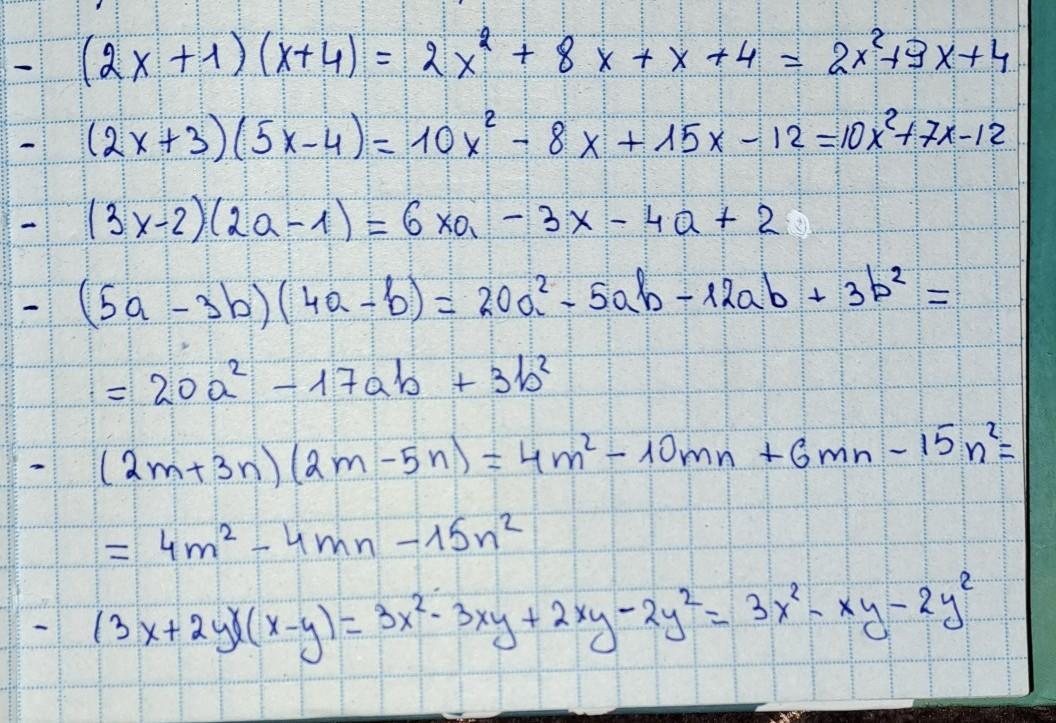 - (2x+1)(x+4) = 2x² + 8x + x + 4 = 2x²+9x+4
- (2x+3)(5x-4) = 10x² - 8x + 15x - 12 = 10x²+7x-12
- (3x-2)(2a-1) = 6xa - 3x - 4a + 2
- (5a - 3b)(4a - b) = 20a² - 5ab - 12ab + 3b² =
= 20a² - 17ab + 3b²
- (2m+3n)(2m-5n) = 4m² - 10mn + 6mn - 15n² =
= 4m² - 4mn - 15n²
- (3x+2y)(x-y) = 3x² - 3xy + 2xy - 2y² = 3x² - xy - 2y²